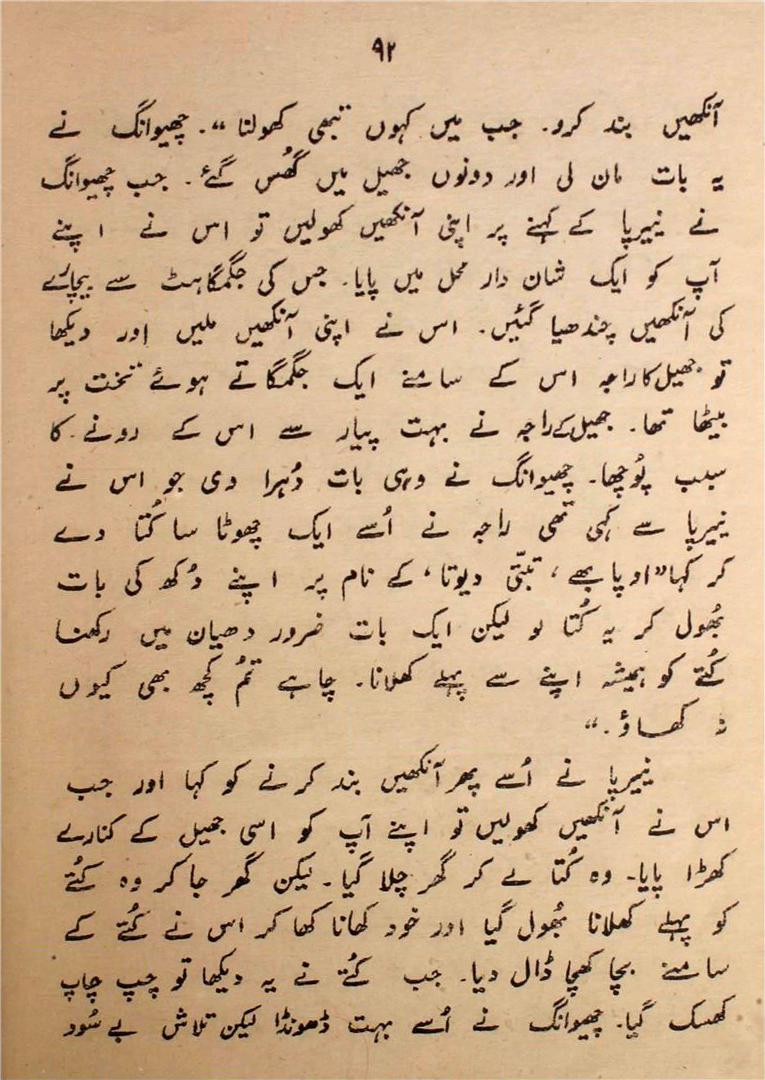 ۹۲
آنکھیں بند کرو۔ جب میں کہوں تبھی کھولنا“۔ چھیوانگ نے
یہ بات مان لی اور دونوں جھیل میں گھُس گئے۔ جب چھیوانگ
نے نیپرپا کے کہنے پر اپنی آنکھیں کھولیں تو اس نے اپنے
آپ کو ایک شان دار محل میں پایا۔ جس کی جگمگاہٹ سے بیچارے
کی آنکھیں چندھیا گئیں۔ اس نے اپنی آنکھیں ملیں اور دیکھا
تو جھیل کا راجہ اس کے سامنے ایک جگمگاتے ہوئے تخت پر
بیٹھا تھا۔ جھیل کے راجہ نے بہت پیار سے اس کے رونے کا
سبب پُوچھا۔ چھیوانگ نے وہی بات دُہرا دی جو اس نے
نیپرپا سے کہی تھی راجہ نے اُسے ایک چھوٹا سا کُتا دے
کر کہا ”او پابھے، تبتّی دیوتا، کے نام پر اپنے دُکھ کی بات
بُھول کر یہ کُتا لو لیکن ایک بات ضرور دھیان میں رکھنا
کُتے کو ہمیشہ اپنے سے پہلے کھلانا۔ چاہے تمُ کچھ بھی کیوں
نہ کھاؤ۔“
نیپرپا نے اُسے پھر آنکھیں بند کرنے کو کہا اور جب
اس نے آنکھیں کھولیں تو اپنے آپ کو اسی جھیل کے کنارے
کھڑا پایا۔ وہ کُتا لے کر گھر چلا گیا۔ لیکن گھر جا کر وہ کُتے
کو پہلے کھلانا بُھول گیا اور خود کھانا کھا کر اس نے کُتے کے
سامنے بچا کھچا ڈال دیا۔ جب کُتے نے یہ دیکھا تو چپ چاپ
کھسک گیا۔ چھیوانگ نے اُسے بہت ڈھونڈا لیکن تلاش بے سُود